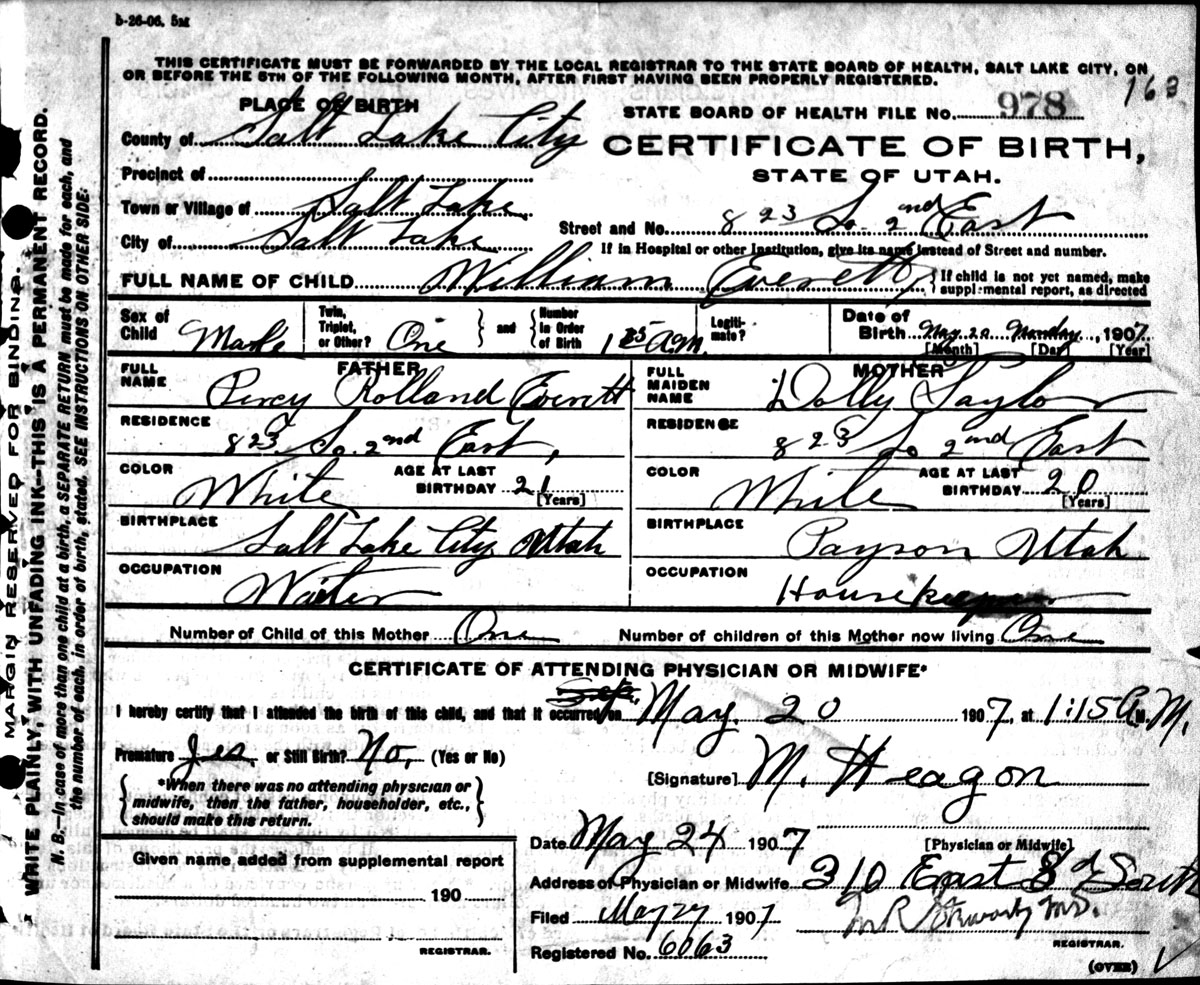 b-26-06. 5M
THIS CERTIFICATE MUST BE FORWARDED BY THE LOCAL REGISTRAR TO THE STATE BOARD OF HEALTH, SALT LAKE CITY, ON
OR BEFORE THE 5TH OF THE FOLLOWING MONTH, AFTER FIRST HAVING BEEN PROPERLY REGISTERED.
163
PLACE OF BIRTH
STATE BOARD OF HEALTH FILE NO. 978
County of Salt Lake City
CERTIFICATE OF BIRTH,
Precinct of
STATE OF UTAH.
Town or Village of Salt Lake
Street and No. 823 So. 2nd East
City of Salt Lake
If in Hospital or other Institution, give its name instead of Street and number.
FULL NAME OF CHILD William Everett
If child is not yet named, make
supplemental report, as directed
Sex of Child Male
Twin, Triplet, or Other? One
and Number in Order of Birth 1 15 A.M.
Legiti-mate?
Date of Birth May 20 Monday, 1907
[Month] [Day] [Year]
FATHER
FULL NAME Percy Rolland Everett
RESIDENCE 823 So. 2nd East,
COLOR White AGE AT LAST BIRTHDAY 21 [Years]
BIRTHPLACE Salt Lake City Utah
OCCUPATION Waiter
MOTHER
FULL MAIDEN NAME Dolly Taylor
RESIDENCE 823 So 2nd East
COLOR White AGE AT LAST BIRTHDAY 20 [Years]
BIRTHPLACE Payson Utah
OCCUPATION Housekeeper
Number of Child of this Mother One Number of children of this Mother now living One
CERTIFICATE OF ATTENDING PHYSICIAN OR MIDWIFE*
I hereby certify that I attended the birth of this child, and that it occurred on May. 20 1907, at 1:15 A.M.
Premature Yes or Still Birth? No, (Yes or No)
[Signature] M. Heagon
*When there was no attending physician or
midwife, then the father, householder, etc.,
should make this return.
Date May 24 1907
[Physician or Midwife]
Given name added from supplemental report
190
REGISTRAR.
Address of Physician or Midwife 310 East 8d South
Filed May 27 1907
M.D.
REGISTRAR.
Registered No. 6063
(OVER)
MARGIN RESERVED FOR BINDING.
WRITE PLAINLY, WITH UNFADING INK--THIS IS A PERMANENT RECORD.
N. B.--In case of more than one child at a birth, a SEPARATE RETURN must be made for each, and
the number of each, in order of birth, stated. SEE INSTRUCTIONS ON OTHER SIDE.